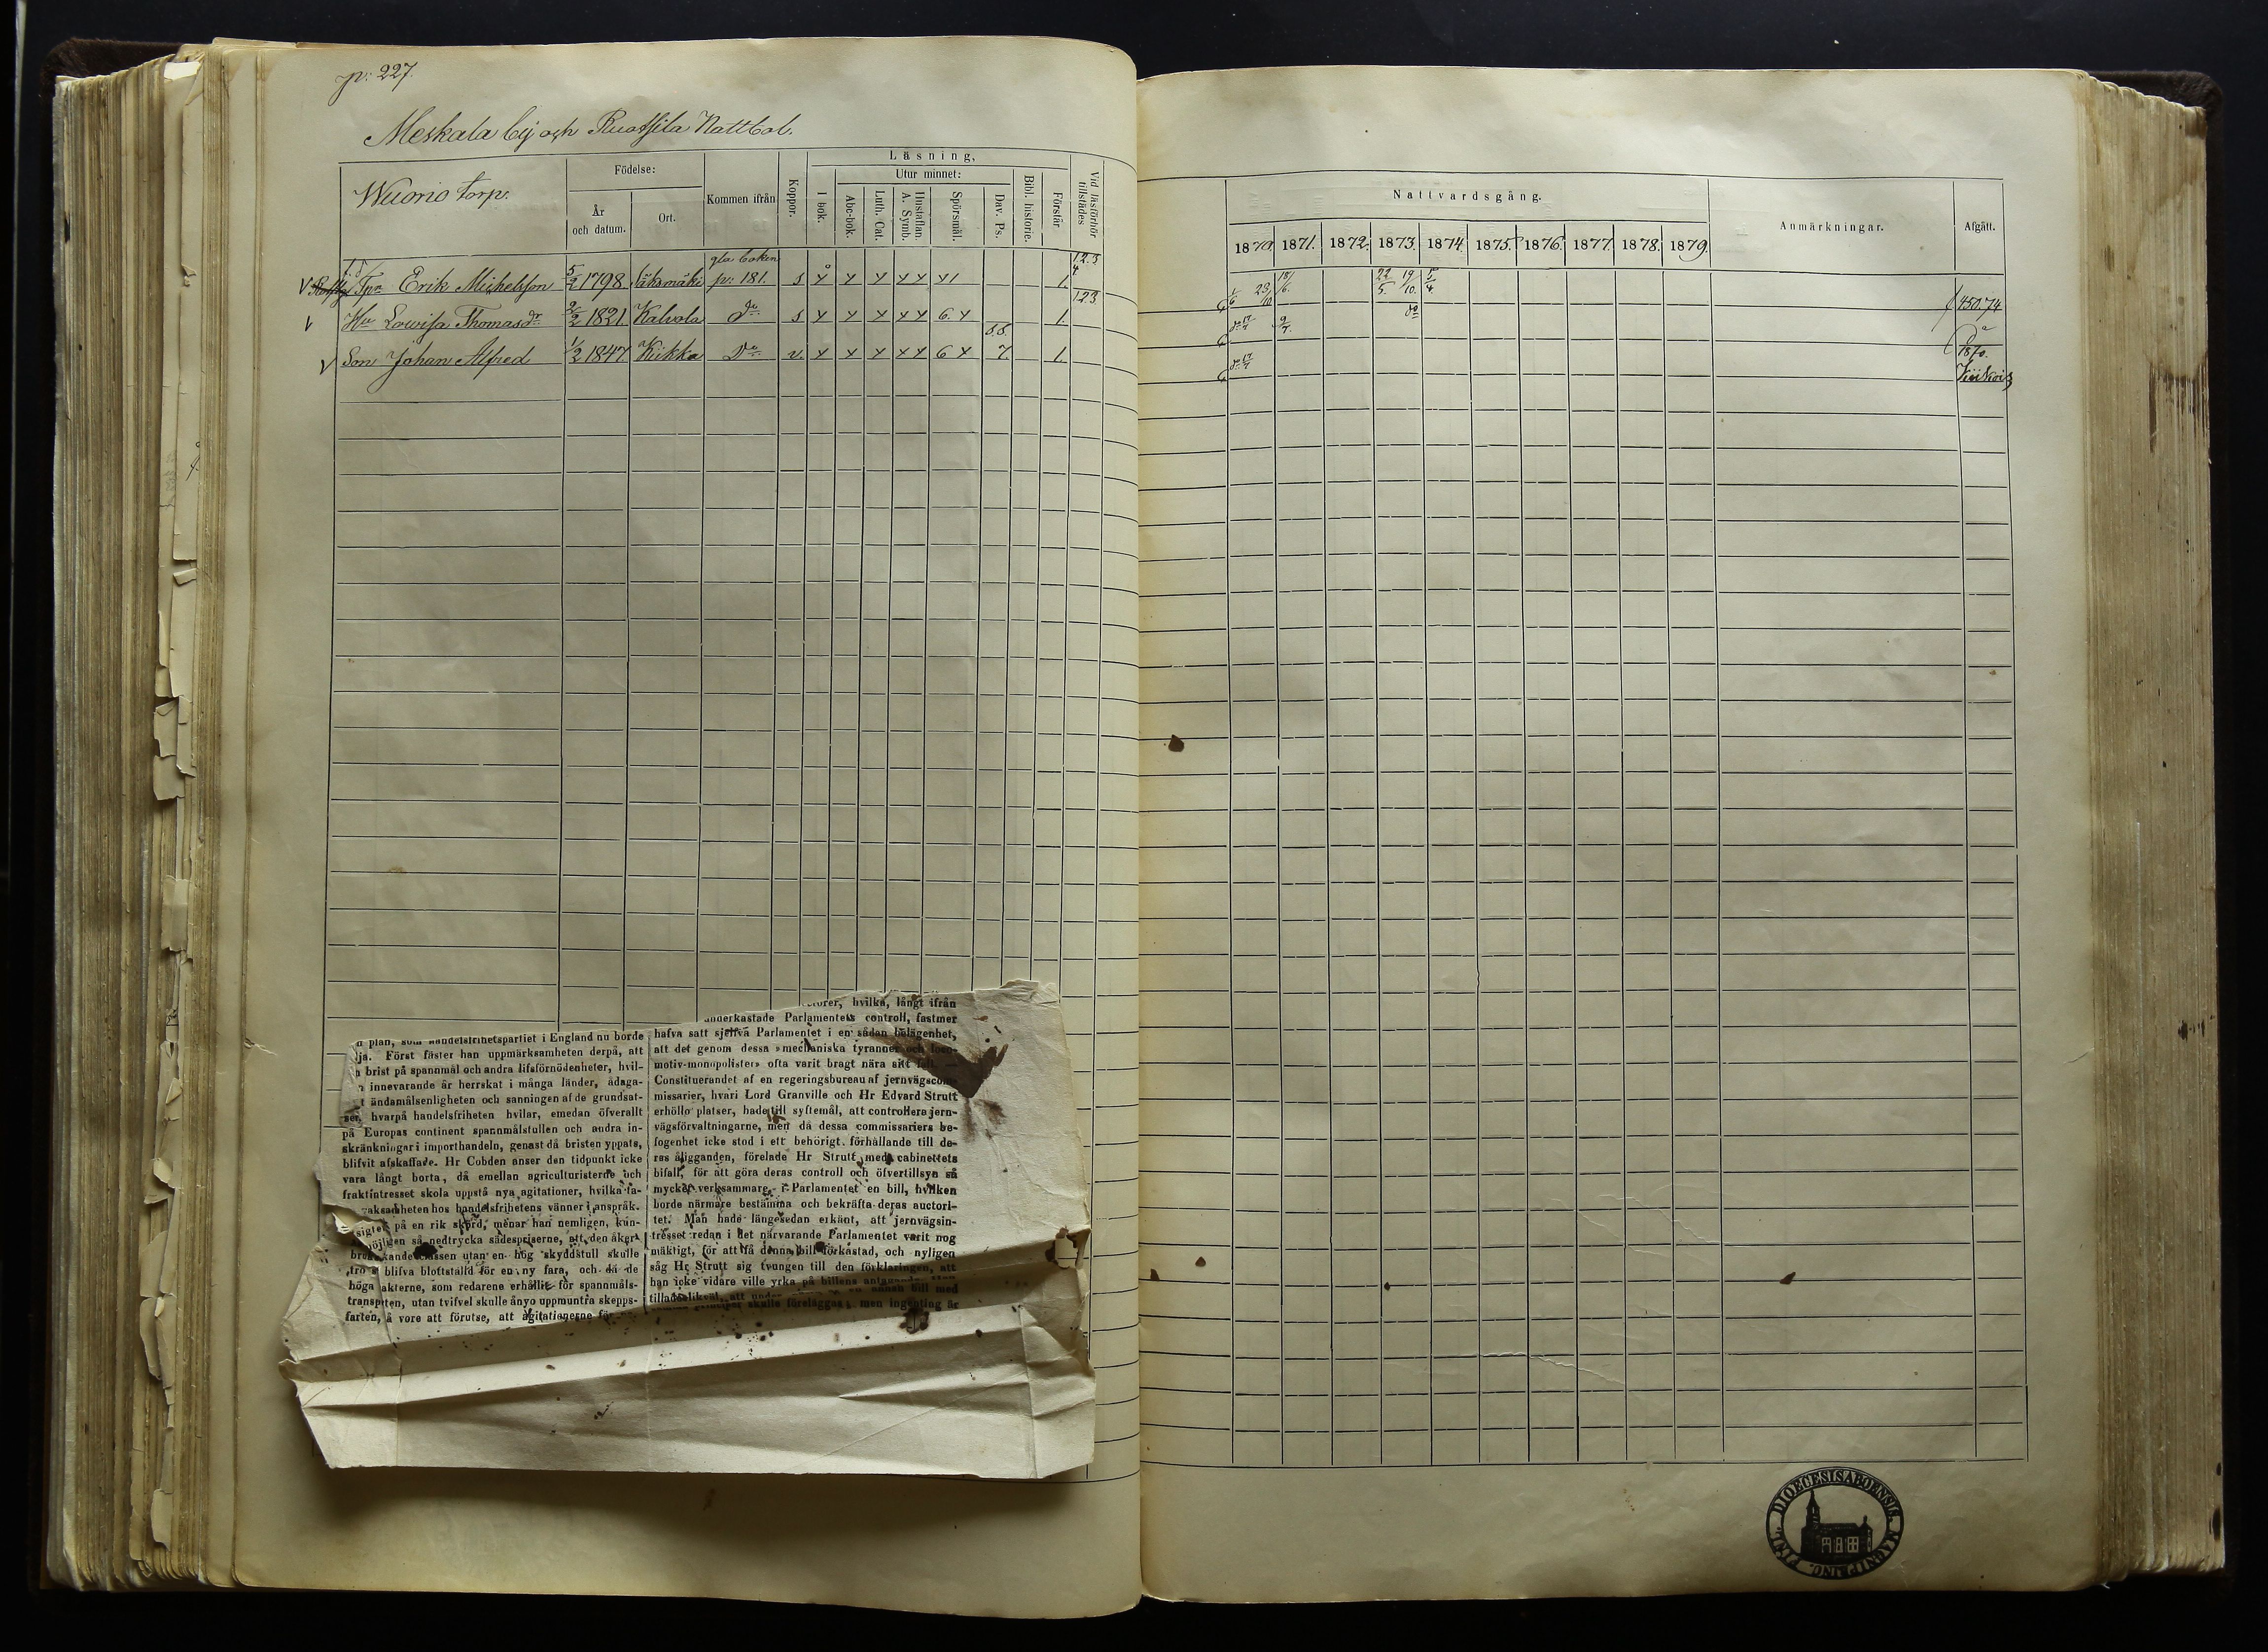 p: 227.
Meskala by och Ruotsila Nattbol.
Wuorio torp.
Födelse:
År
och datum.
Ort.
Kommen ifrån
Koppor.
Läsning,
I bok.
Utur minnet:
Abc-bok.
Luth. Cat.
Hustaflan.
A. Symb.
Spörsmål.
Dav. Ps.
Bibl. historie.
Förstår
Vid läsförhör
tillstädes
Nattvardsgång.
1870. 1871. 1872. 1873. 1874. 1875. 1876. 1877. 1878. 1879.
Anmärkningar.
Afgått.
gla boken 1.2.3
4
Erik Michelsson 5/2 1798 Säksmäki p: 181. s x x x x x x 1 1. 1/6 23/10 18/6. 22/5. 19/10. 5/4
1.2.3.
Hu Lowisa Thomasdr 2/2 1821 Kalvola Do s x x x x x 6. x 1. 9/7. do 450.74
Son Johan Alfred 1/2 1847 Kiikka Do v. x x x x x 6 x 7. 1. 1870.
hvilka, långt ifrån
underkastade Parlamentets controll, fastmer
hafva satt sjelfva Parlamentet i en sådan belägenhet,
att det genom dessa »mechaniska tyranner och loco-
motiv-monopolister» ofta varit bragt nära sitt fall. —
Constituerandet af en regeringsbureau af jernvägscom-
missarier, hvari Lord Granville och Hr Edvard Strutt
erhöllo platser, hade till syftemål, att controllera jern-
vägsförvaltningarne, men då dessa commissariers be-
fogenhet icke stod i ett behörigt förhållande till de-
ras åligganden, förelade Hr Strutt med cabinettets
bifall, för att göra deras controll och öfvertillsyn så
mycket verksammare, i Parlamentet en bill, hvilken
borde närmare bestämma och bekräfta deras auctori-
tet. Man hade längesedan erkänt, att jernvägsin-
tresset redan i det närvarande Parlamentet varit nog
mäktigt, för att få denna bill förkastad, och nyligen
såg Hr Strutt sig tvungen till den förklaringen, att
han icke vidare ville yrka på billens antagande.
annan bill med
skulle föreläggas; men ingenting är
plan, som handelsfrihetspartiet i England nu borde
lja. Först fäster han uppmärksamheten derpå, att
brist på spannmål och andra lifsförnödenheter, hvil-
innevarande år herrskat i många länder, ådaga-
t ändamålsenligheten och sanningen af de grundsat-
ser, hvarpå handelsfriheten hvilar, emedan öfverallt
på Europas continent spannmålstullen och andra in-
skränkningar i importhandeln, genast då bristen yppats,
blifvit afskaffade. Hr Cobden anser den tidpunkt icke
vara långt borta, då emellan agriculturisterne och
fraktintresset skola uppstå nya agitationer, hvilka ta-
vaksamheten hos handelsfrihetens vänner i anspråk.
sigten på en rik skörd, menar han nemligen, kun-
möjligen så nedtrycka sädespriserne, att den åker-
brukande classen utan en hög skyddstull skulle
tro sig blifva blottställd för en ny fara, och då de
höga frakterne, som redarene erhållit för spannmåls-
transporten, utan tvifvel skulle ånyo uppmuntra skepps-
farten, så vore att förutse, att agitationerne för
FINL. DIOECESIS ABOENSIS. MAGNI PRINC.